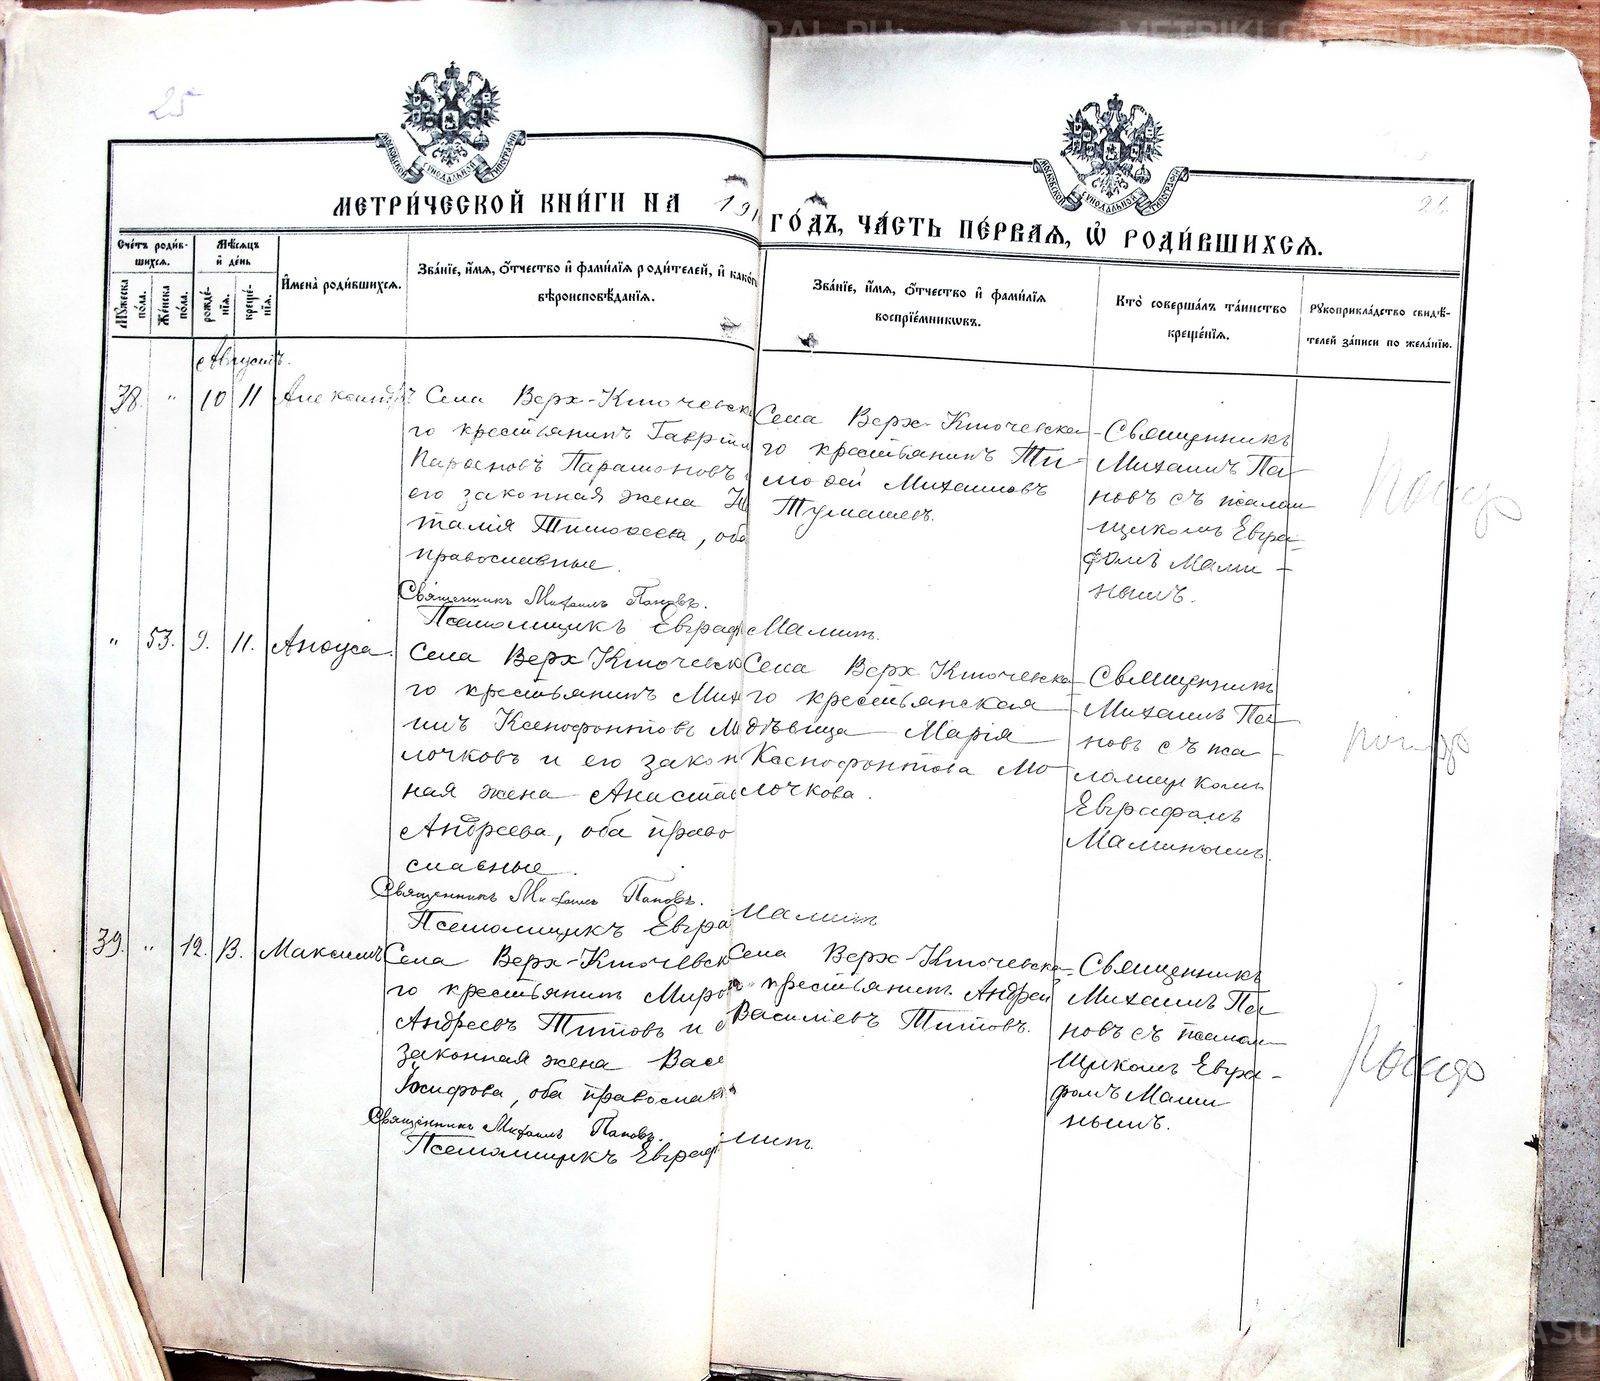 25
МОСКОВСКОЙ СѴНОДАЛЬНОЙ ТИПОГРАФІИ
МОСКОВСКОЙ СѴНОДАЛЬНОЙ ТИПОГРАФІИ
МЕТРИ́ЧЕСКОЙ КНИ́ГИ НА 191
ГО́ДЪ, ЧА́СТЬ ПЕ́РВАЯ, Ѡ҆ РОДИ́ВШИХСЯ.
Сче́тъ роди́в-
шихся.
Мꙋ́жеска по́ла.
Же́нска по́ла.
Мѣ́сяцъ и҆ де́нь
рожде́-
нїѧ.
креще́-
нїѧ.
И҆мена̀ роди́вшихся.
Зва́нїе, и҆́мѧ, ѻ҆́тчество и҆ фами́лїѧ роди́телей, и҆ како́г
вѣроисповѣ́данїѧ.
Зва́нїе, и҆́мѧ, ѻ҆́тчество и҆ фами́лїѧ
воспрїе́мникѡвъ.
Кто̀ соверша́лъ та́инство
креще́нїѧ.
Рꙋкоприкла́дство свидѣ́-
телей за́писи по жела́нїю.
Августъ.
38. " 10 11 Александръ
Села Верх-Ключевска
го крестьянинъ Гаврiил
Парѳеновъ Парамоновъ
его законная жена На
талiя Тимоѳеева, оба
православные.
Священникъ Михаилъ Поповъ.
Псаломщикъ Евграф Маминъ.
Села Верх-Ключевска-
го крестьянинъ Ти-
моѳей Михаиловъ
Тумашевъ.
Священникъ
Михаилъ По-
повъ съ псалом
щикомъ Евгра-
фомъ Мами-
нымъ.
" 53. 9. 11. Анфуса.
Села Верх Ключевск
го крестьянинъ Миха
илъ Ксенофонтовъ Мо
лочковъ и его закон
ная жена Анастас
Андреева, оба право
славные.
Священникъ Михаилъ Поповъ.
Псаломщикъ Евгра Маминъ
Села Верх Ключевска-
го крестьянская
дѣвица Марiя
Ксенофонтова Мо-
лочкова.
Священникъ
Михаилъ По-
повъ съ пса-
ломщикомъ
Евграфомъ
Маминымъ.
39. " 12. 13. Максимъ
Села Верх-Ключевск
го крестьянинъ Миро
Андреевъ Титовъ и е
законная жена Васс
Іосифова, оба православ
Священникъ Михаилъ Поповъ.
Псаломщикъ Евграф минъ.
Села Верх-Ключевска-
го крестьянинъ Андрей
Василiевъ Титовъ.
Священникъ
Михаилъ По-
повъ съ псалом-
щикомъ Евгра-
фомъ Мами
нымъ.